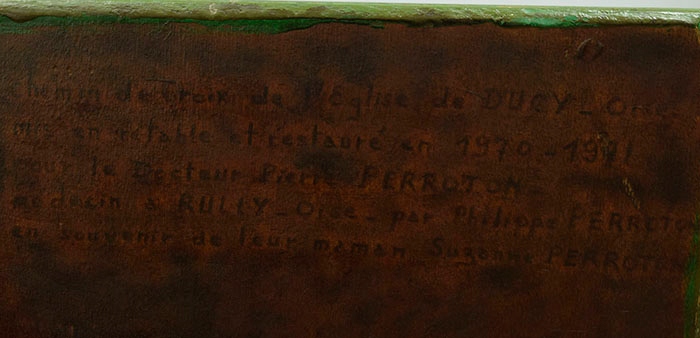 chemin de Croix de l'Eglise de DUCY - Oise
mis en retable et restauré en 1970 - 1971
pour le Docteur Pierre PERROTON -
médecin à RULLY - Oise - par Philippe PERROTON
en souvenir de leur maman Suzanne PERROTON